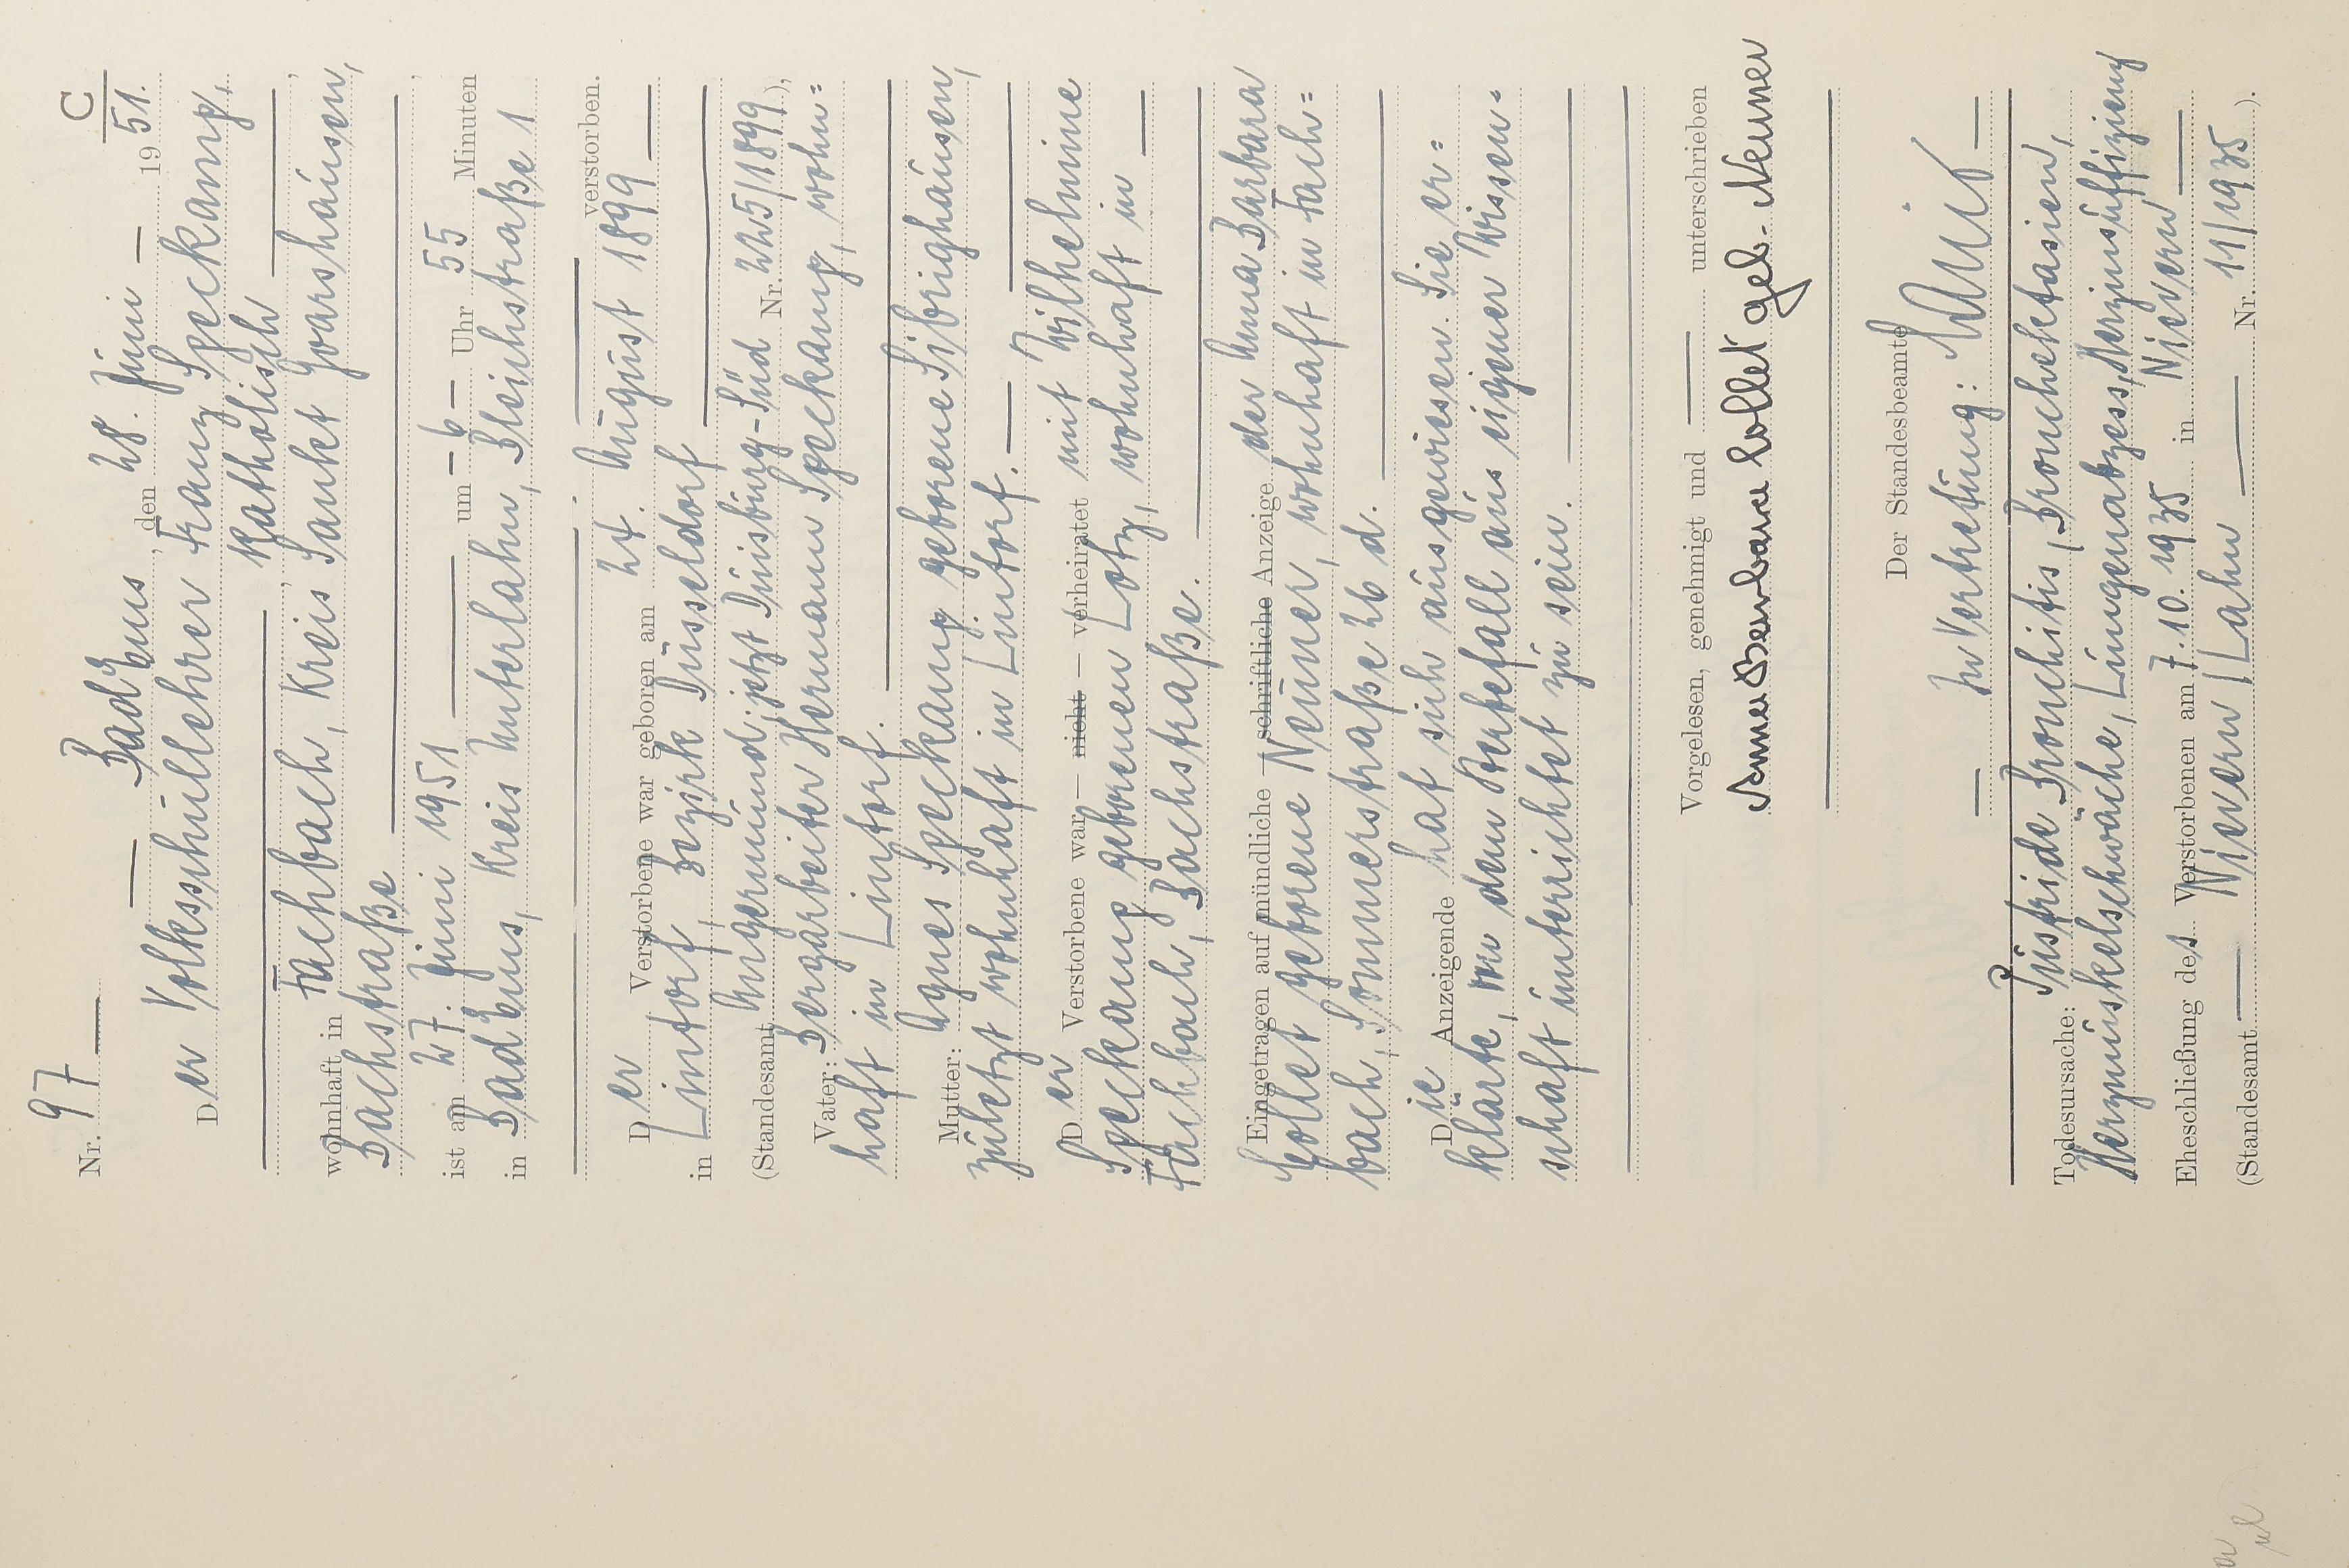 C
Nr. 97 —
— Bad Ems, den 28. Juni — 1951.
Der Volksschullehrer Franz Speckamp,
— katholisch —,
wohnhaft in Fachbach, Kreis Sankt Goarshausen,
Bachstraße —,
ist am 27. Juni 1951 — um — 6 — Uhr 55 Minuten
in Bad Ems, Kreis Unterlahn, Bleichstraße 1
— verstorben.
Der Verstorbene war geboren am 24. August 1899 —
in Lintorf, Bezirk Düsseldorf —
(Standesamt Angermund, jetzt Duisburg-Süd Nr. 225/1899),
Vater: Bergarbeiter Hermann Speckamp, wohn=
haft in Lintorf. —
Mutter: Agnes Speckamp geborene Sibrighausen,
zuletzt wohnhaft in Lintorf. —
Der Verstorbene war — nicht — verheiratet mit Wilhelmine
Speckamp geborenen Lotz, wohnhaft in —
Fachbach, Bachstraße. —
Eingetragen auf mündliche — schriftliche Anzeige der Anna Barbara
Collet geborene Neuner, wohnhaft in Fach=
bach, Sommerstraße 26 d. —
Die Anzeigende hat sich ausgewiesen. Sie er=
klärte, von dem Sterbefall aus eigener Wissen=
schaft unterrichtet zu sein. —
Vorgelesen, genehmigt und — unterschrieben
Anna Barbara Collet geb. Neuner
Der Standesbeamte
— In Vertretung: —
Todesursache: Putride Bronchitis, Bronchektasien,
Herzmuskelschwäche, Lungenabzess, Herzinsuffizienz
Eheschließung des Verstorbenen am 7.10.1935 in Nievern —
(Standesamt — Nievern/Lahn — Nr. 11/1935).